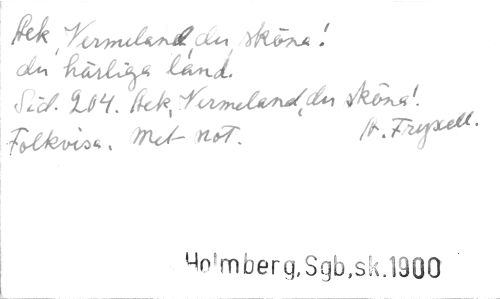 Ack, Vermeland, du sköna!
du härliga land.
Sid. 204. Ack, Vermeland, du sköna!
Folkvisa. Met not. A. Fryxell.
Holmberg,Sgb,sk.1900